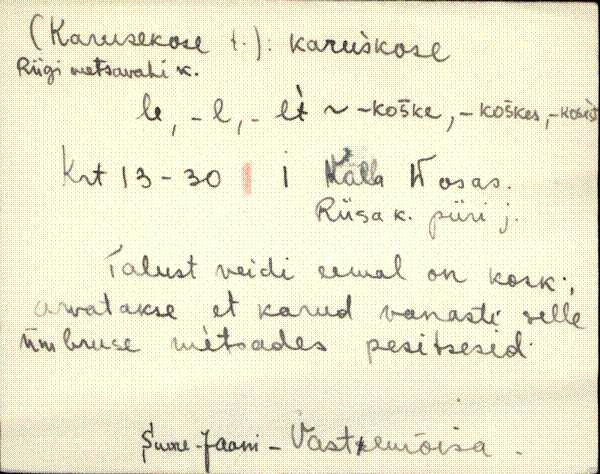 (Karusekose t.): karuškose
Riigi metsavahi k.
le, - l, - lt ~ -koške, - koškes, -košest
Krt 13-30 i Källa Kosas.
Riisa k. piiri j.
Talust veidi eemal on kosk;
arvatakse et karud vanasti selle
ümbruse metsades pesitsesid
Suure-Jaani - Vastemõisa.